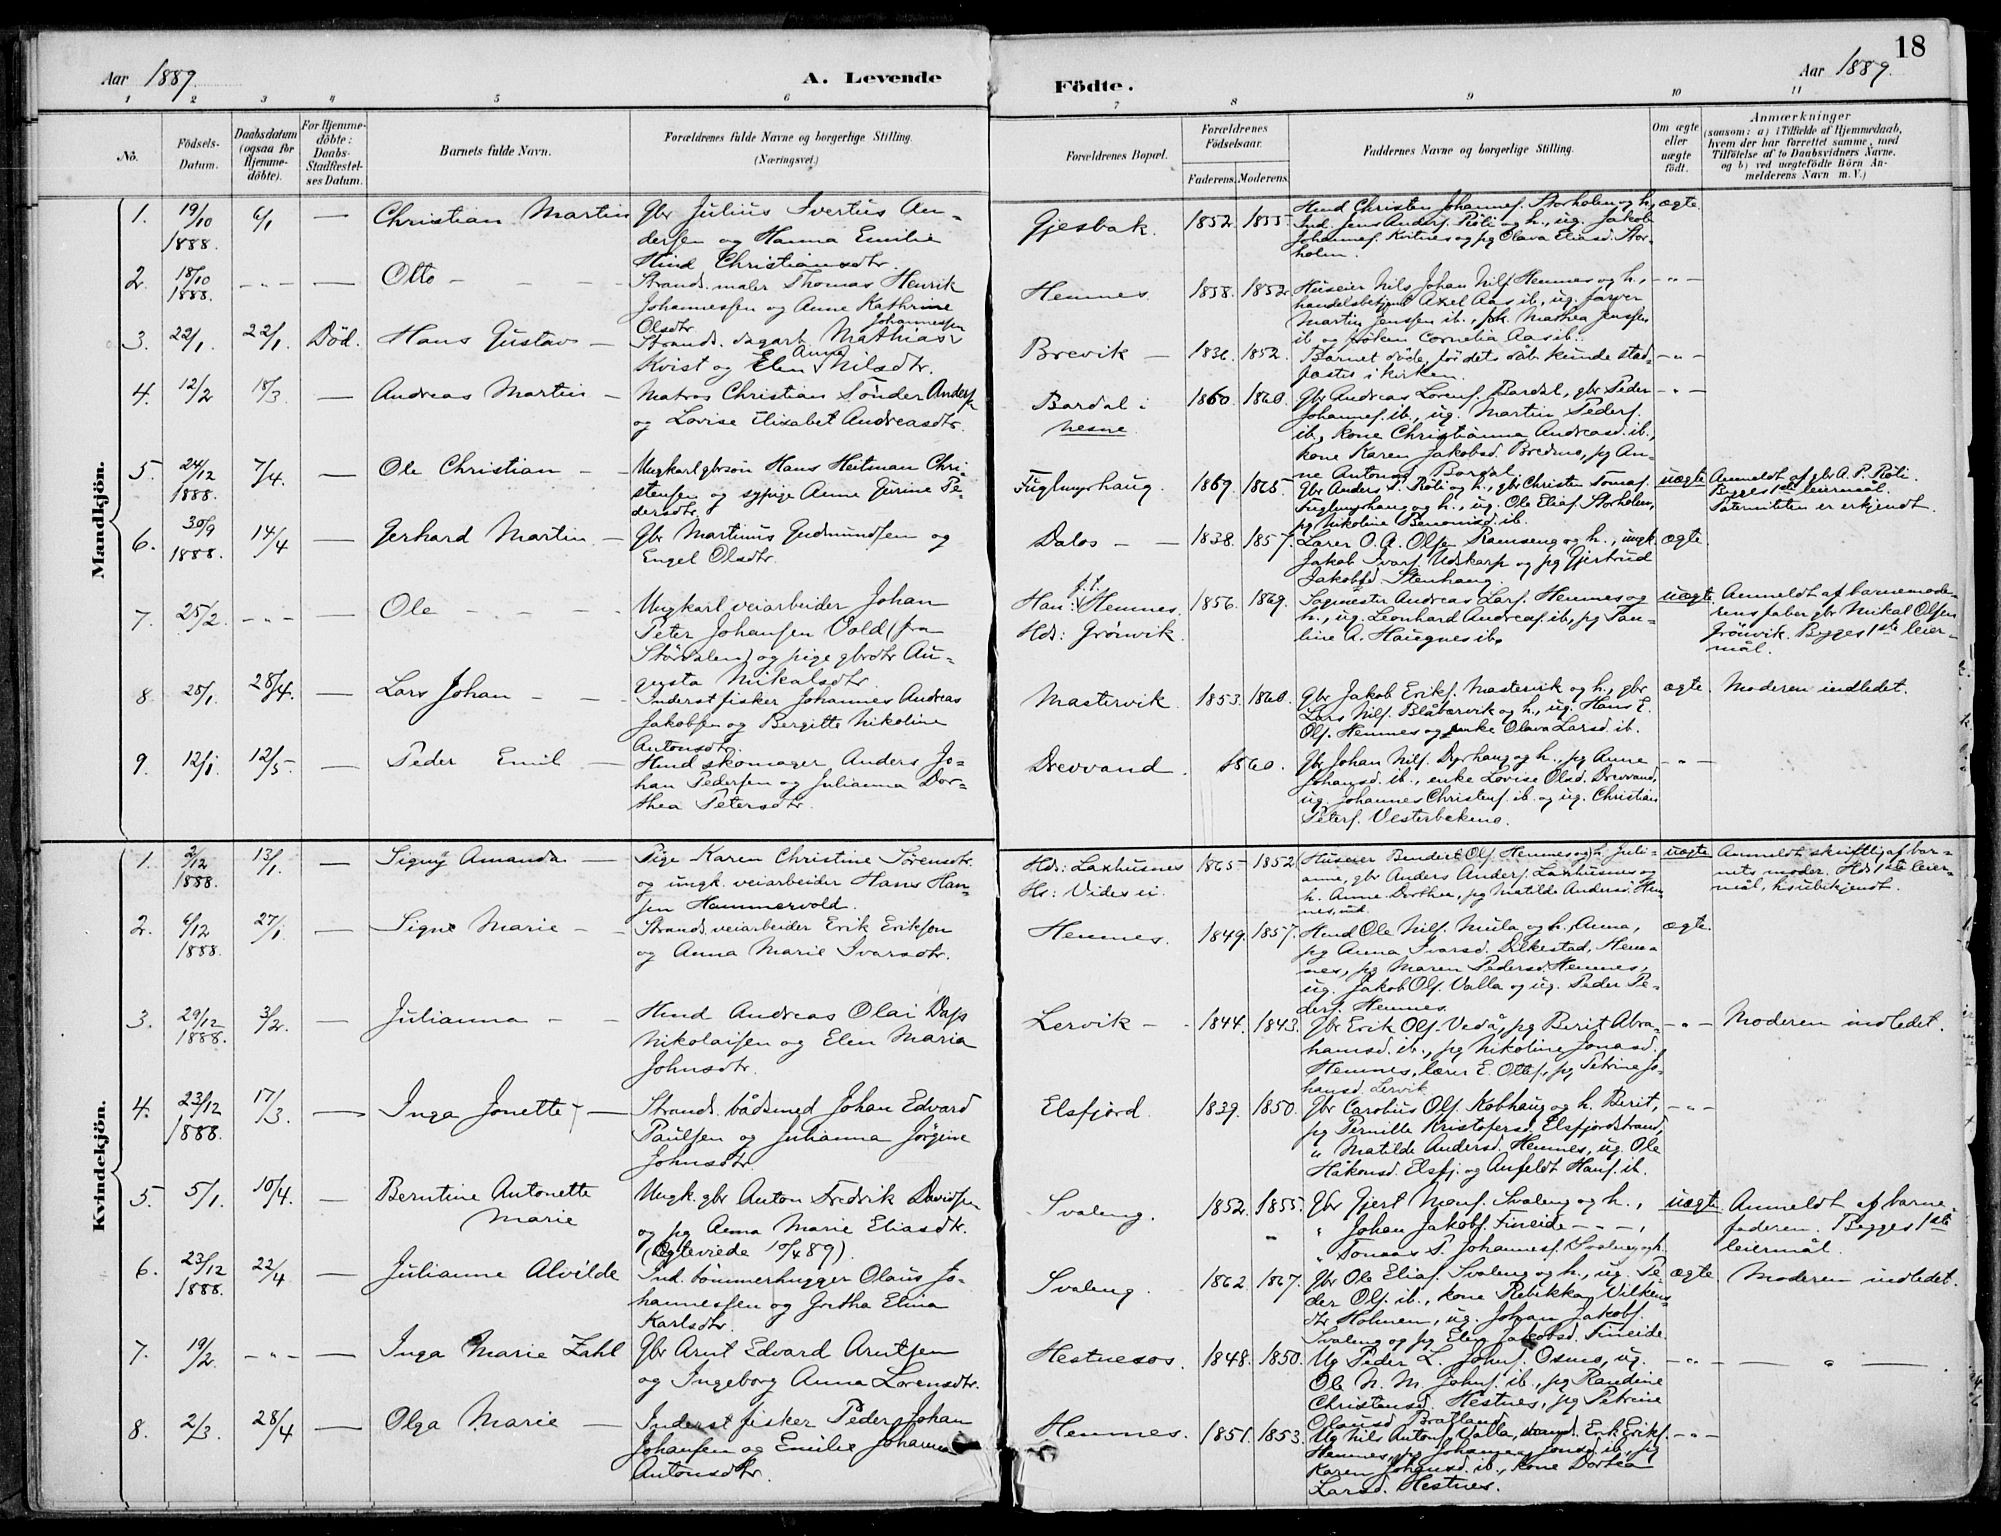 18
Aar 1889.
A. Levende
Födte.
Aar 1889.
1 2 3 4 5 6 7 8 9 10 11
No.
Födsels-
Datum.
Daabsdatum
(ogsaa för
Hjemme-
döbte).
For Hjemme-
döbte:
Daabs-
Stadfæstel-
ses Datum.
Barnets fulde Navn.
Forældrenes fulde Navne og borgerlige Stilling.
(Næringsvej.)
Forældrenes Bopæl.
Forældrenes
Födselsaar.
Faderens. Moderens.
Faddernes Navne og borgerlige Stilling.
Om ægte
eller
uægte
født.
Anmærkninger
(saasom: a) i Tilfælde af Hjemmedaab,
hvem der har forrettet samme, med
Tilföielse af to Daabsvidners Navne,
og b) ved uægtefödte Börn An-
melderens Navn m. V.)
Mandkjön.
1. 19/10 1888. 6/1 — Christian Martin
Gbr Julius Svertus An-
dersen og Hanna Emilie
Gjesbak. 1852. 1855.
Hmd Christen Johannes. Storholm og h,
Ind. Jens Anders. Röli og h., ug. Jakob
Johannes. Kvitnes og pg Olava Eliasd. Stor-
holm.
ægte.
2. 18/10 1888. - " - — Otto - - -
Hind Christiansdtr.
Strands. maler Thomas Henrik
Johannessen og Anne Kathrine
Olsdtr.
Hemnes. 1858. 1852.
Huseier Nils Johan Nils. Hemnes og h.,
handelsbetjent Axel Aas ib., ug. farver
Martin Jenssen ib., frk. Mathea Jenssen
ib og fröken Cornelia Aas ib.
- " -
3. 22/1. 22/1. Död. Hans Gustav —
Strands. dagarb. Mathias Johannessen
Kvist og Elen Anna Nilsdtr.
Brevik — 1852.
Barnet döde, för dets dåb kunde stad-
fæstes i kirken.
- " -
4. 12/2 18/3. — Andreas Martin —
Matros Christian Sönder Anders.
og Lovise Elisabet Andreasdtr.
Bardal i
Nesne.
1860. 1860.
Gbr Andreas Lorens. Bardal, gbr Peder
Johannes. ib., ug. Martin Peders.
ib., kone Christianna Andreasd. ib.,
kone Karen Jakobsd. Bredmo, pg An-
ne Antonsd Bardal.
- " -
5. 24/12 1888. 7/4. — Ole Christian —
Ungkarl gbrsön Hans Heitman Chri-
stensen og sypige Anne Gurine Pe-
dersdtr.
Fuglmyrhaug. 1869. 1865.
Gbr Anders P. Röli og h., gbr Christen Tomas.
Fuglmyrhaug og h., ug. Ole Elias. Storholm,
pg Nikoline Benonisd. ib.
uægte
Anmeldt af gbr A. P. Röli.
Begges 1ste leiermål.
Paterniteten er erkjendt.
6. 30/9 1888. 14/4 — Gerhard Martin —
Gbr Martinus Gudmundsen og
Engel Olsdtr.
Dalos — 1838. 1857.
Lærer O. A. Olsen Ramseng og h., ungk.
Jakob Ivars. Udskarp og pg Gjertrud
Jakobsd. Stenhaug.
ægte.
7. 25/2. - " - — Ole - - -
Ungkarl veiarbeider Johan
Peter Johansen Vold (fra
Störsalen) og pige gbrdtr Au-
gusta Mikalsdtr.
Han: f.t. Hemnes.
Hds: Grönvik.
1856. 1869.
Sagmester Andreas Lars. Hemnes og
h., ug. Leonhard Andreas. ib, pg Pau-
line A. Haugnes ib.
uægte.
Anmeldt af barnemode-
rens faber gbr Mikal Olsen
Grönvik. Begges 1ste leier-
mål.
8. 25/1. 28/4. — Lars Johan - -
Inderst fisker Johannes Andreas
Jakobsen og Bergitte Nikoline
Antonsdtr.
Mastervik 1853. 1860.
Gbr Jakob Eriks. Mastervik og h., gbr
Lars Nils. Blåbærvik og h., ug. Hans E.
Ols. Hemnes og enke Olava Larsd. ib.
ægte. Moderen indledet.
9. 12/1. 12/5. — Peder Emil —
Hmd skomager Anders Jo-
han Pedersen og Julianna Dor-
thea Petersdtr.
Drevvand. 1860.
Gbr Johan Nils. Dyrhaug og h., pg Anne
Johansd. ib., enke Lovise Olsd. Drevvand,
ug. Johannes Christens. ib. og ug. Christian
Peters. Vesterbekmo.
- " -
Kvindekjön.
1. 2/12 1888. 13/1. — Signy Amanda —
Pige Karen Christine Sörensdtr.
og ungk. veiarbeider Hans Han-
sen Hammervold.
Hds: Laxhusnes
Hs: Vides ei.
1865. 1852.
(Huseier Bendick Ols. Hemnes og) h. Juli-
anne, gbr Anders Anders. Laxhusnes og
h. Anne Dorthea, pg Matilde Andersd. Hem-
nes, ud.
uægte
Anmeldt skriftlig af bar-
nets moder. Hds 1ste leier-
mål, hs ubekjendt.
2. 6/12 1888. 27/1. — Signe Marie - -
Strands. veiarbeider Erik Eriksen
og Anna Marie Ivarsdtr.
Hemnes. 1849. 1857.
Hmd Ole Nils. Mula og h. Anna,
pg Anna Ivarsd. Dilkestad, Hem-
nes, pg Maren Pedersd. Hemnes,
ug. Jakob Ols. Valla og ug. Peder Pe-
ders. Hemnes.
ægte.
3. 29/12 1888. 3/2. — Julianna - -
Hmd Andreas Olai Dass
Nikolaisen og Elen Maria
Johnsdtr.
Lervik - 1844. 1843.
Gbr Erik Ols. Vedå, pg Berit Abra-
hamsd. ib., pg Nikoline Jonasd.
Hemnes, lærer E. Ottes., pg Petrine Jo-
hansd. Lervik
- " - Moderen indledet.
4. 23/12 1888. 17/3. — Inga Jonette —
Strands. bådsmed Johan Edvard
Paulsen og Julianna Jörgine
Johnsdtr.
Elsfjord. 1839. 1850.
Gbr Carolius Ols. Kobhaug og h. Berit,
pg Pernille Kristofersd. Elsfjordstrand,
" Matilde Andersd. Hemnes, ug. Ole
Håkonsd. Elsfj. og Anfeldt Hans. ib.
- " -
5. 5/1. 10/4. — Berntine Antonette
Marie
Ungk. gbr Anton Fredrik Davidsen
og pg Anna Marie Eliasdtr.
(Egteviede 10/4 89).
Svaleng. 1852. 1855.
Gbr Gjert Mons. Svaleng og h.,
" Johan Jakobs. Fineide - " - ,
" Tomas P. Johannes. Svaleng og h.
uægte
Anmeldt af barne-
faderen. Begges 1ste
leiermål.
6. 23/12 1888. 22/4 — Julianne Alvilde
Ind. tömmerhugger Olaus Jo-
hannessen og Gretha Elina
Karlsdtr.
Svaleng. 1862. 1867.
Gbr Ole Elias. Svaleng og h., ug. Pe-
der Ols. ib., kone Rebikka Vilkens-
dtr Holmen, ug. Johan Jakobs.
Svaleng og pg Elen Jakobsd. Fineide.
ægte. Moderen indledet.
7. 19/2. - " - — Inga Marie Zahl
Gbr Arnt Edvard Arntsen
og Ingeborg Anna Lorensdtr.
Hestnesos. 1848. 1850.
Ug Peder L. Johns. Osmo, ug.
Ole N. M. Johns. ib., pg Randine
Christensd. Hestnes, pg Petrine
Olausd. Bratland.
- " - — " —
8. 2/3. 28/4 — Olga Marie —
Inderst fisker Peder Johan
Johansen og Emilie Johanna
Antonsdtr.
Hemnes. 1851. 1853.
Ug Nils Antons. Valla, strands. Erik Eriks.
Hemnes, pg Johanna Jonsd. ib., pg
Karen Johansd. ib., kone Dortea
Larsd. Hestnes.
- " -